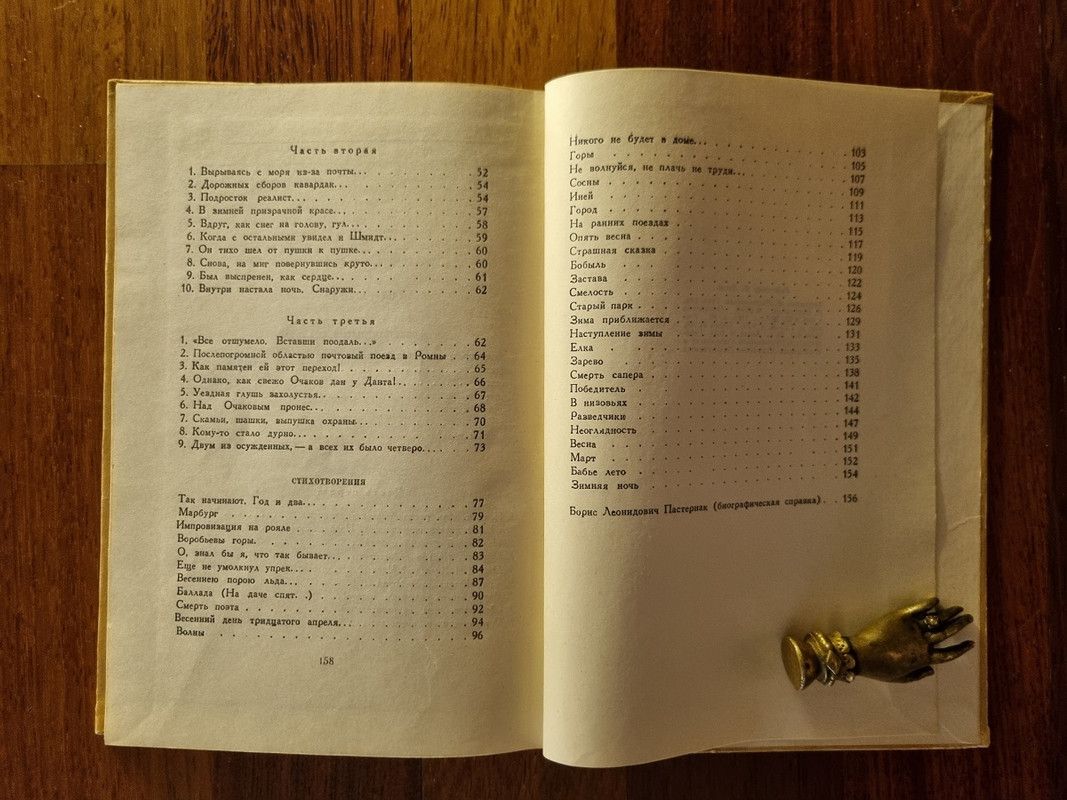 Часть вторая
1. Вырываясь с моря из-за почты... 52
2. Дорожных сборов кавардак... 54
3. Подросток реалист... 54
4. В зимней призрачной красе... 57
5. Вдруг, как снег на голову, гул... 58
6. Когда с остальными увидел и Шмидт... 59
7. Он тихо шел от пушки к пушке... 60
8. Снова, на миг повернувшись круто... 60
9. Был выспренен, как сердце... 61
10. Внутри настала ночь. Снаружи... 62
Часть третья
1. «Все отшумело. Вставши поодаль...» 62
2. Послепогромной областью почтовый поезд в Ромны 64
3. Как памятен ей этот переход! 65
4. Однако, как свежо Очаков дан у Данта! 66
5. Уездная глушь захолустья.. 67
6. Над Очаковым пронес... 68
7. Скамьи, шашки, выпушка охраны... 70
8. Кому-то стало дурно... 71
9. Двум из осужденных, — а всех их было четверо... 73
СТИХОТВОРЕНИЯ
Так начинают. Год и два... 77
Марбург 79
Импровизация на рояле 81
Воробьевы горы. 82
О, знал бы я, что так бывает... 83
Еще не умолкнул упрек... 84
Весеннею порою льда... 87
Баллада (На даче спят. .) 90
Смерть поэта 92
Весенний день тридцатого апреля... 94
Волны 96
158
Никого не будет в доме... 103
Горы 105
Не волнуйся, не плачь не труди... 107
Сосны 109
Иней 111
Город 113
На ранних поездах 115
Опять весна 117
Страшная сказка 119
Бобыль 120
Застава 122
Смелость 124
Старый парк 126
Зима приближается 129
Наступление зимы 131
Елка 133
Зарево 135
Смерть сапера 138
Победитель 141
В низовьях 142
Разведчики 144
Неоглядность 147
Весна 149
Март 151
Бабье лето 152
Зимняя ночь 154
Борис Леонидович Пастернак (биографическая справка) 156